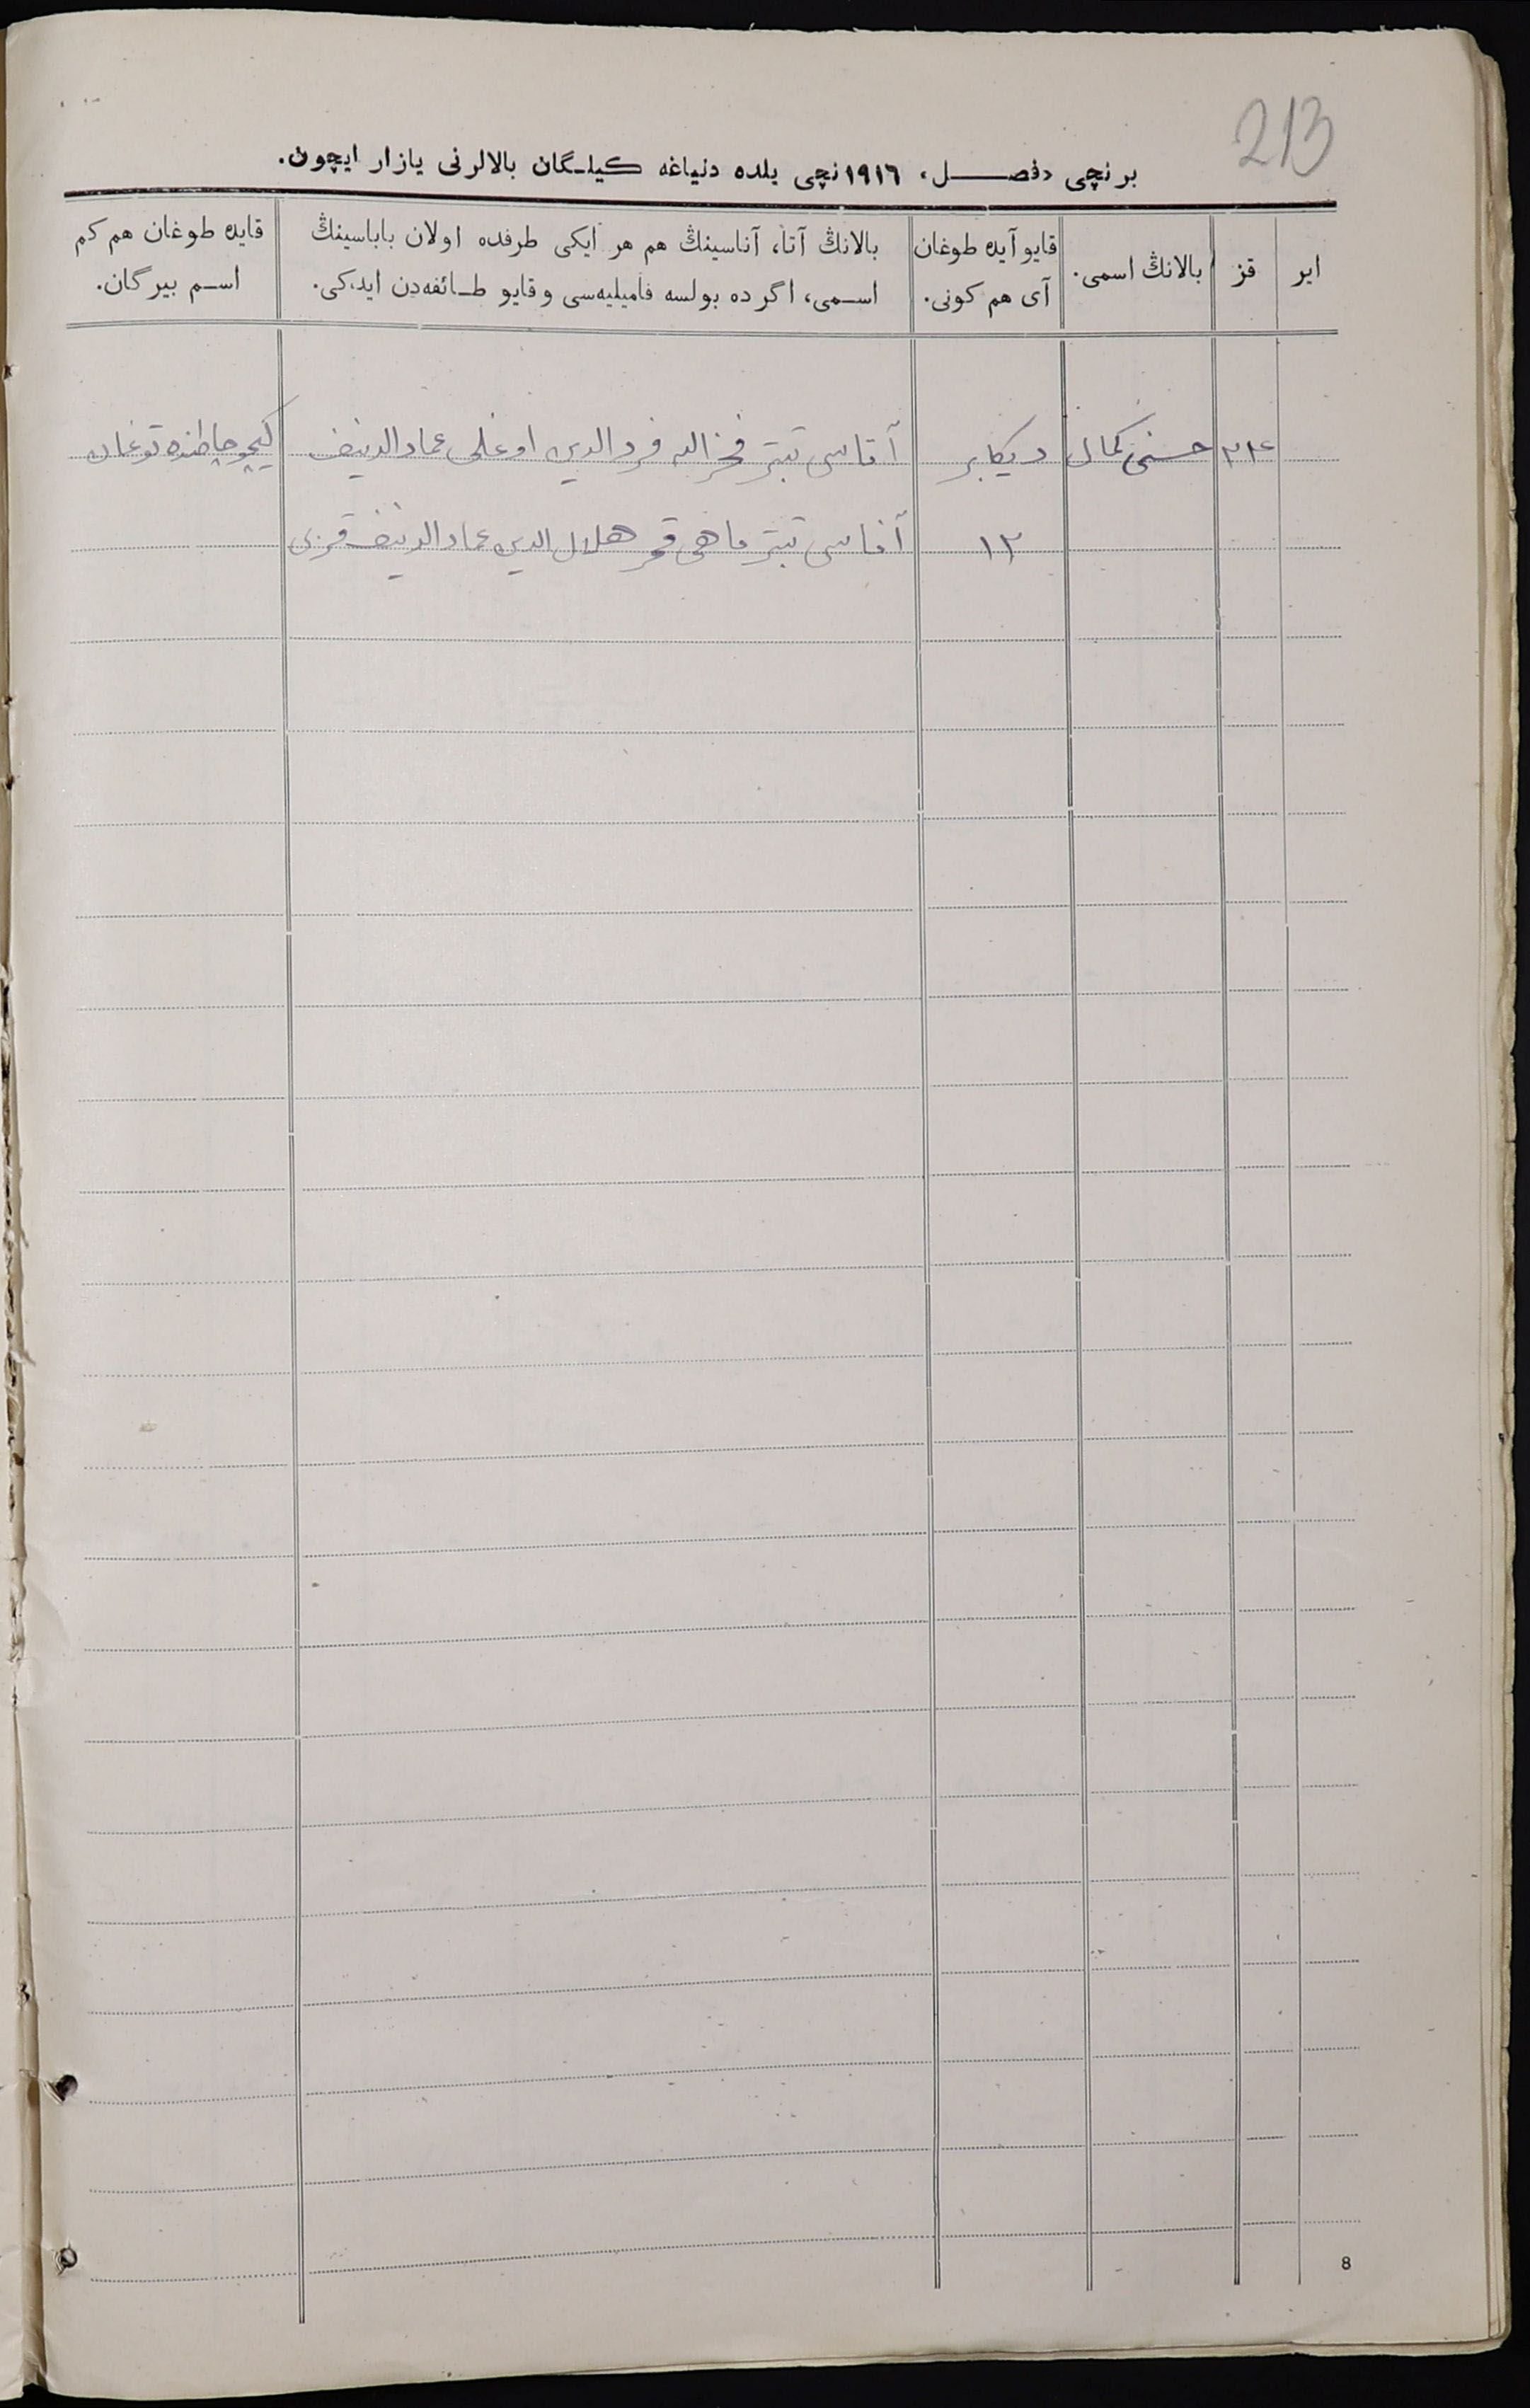 213
برنچی «فصل»، ١٩١٦نچی یلده دنیاغه کیلـگان بالالرنی یازار ایچون.
ایر
قز
بالانڭ اسمی.
قایو آیده طوغان
آی هم کونی.
بالانڭ آتا، آناسینڭ هم هر ایکی طرفده اولان باباسینڭ
اسـمی، اگر ده بولسه فامیلیه‌سی و قایو طـائفه‌دن ایدکی.
قایده طوغان هم کم
اسـم بیرگان.
حسنی کمال
دیکابر
آتاسی فخر الدین اوغلی عمادالدینف
توغان
١٣
آناسی ماهی قمر هلال الدین عمادالدینف قزی
8